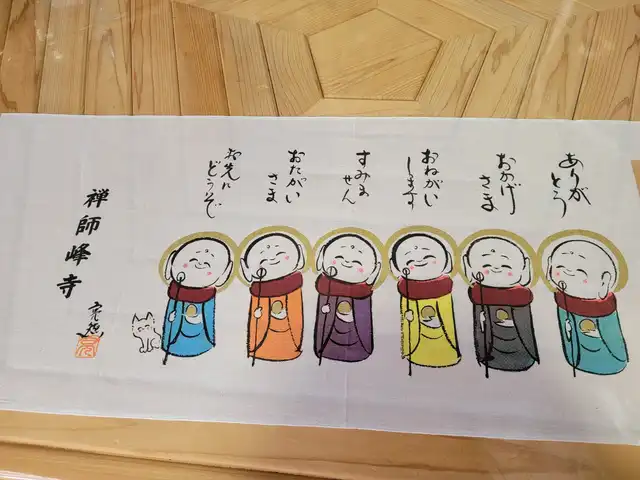 ありが
とう
おかげ
さま
おねがい
します
すみま
せん
おたがい
さま
お先に
どうぞ
禅師峰寺